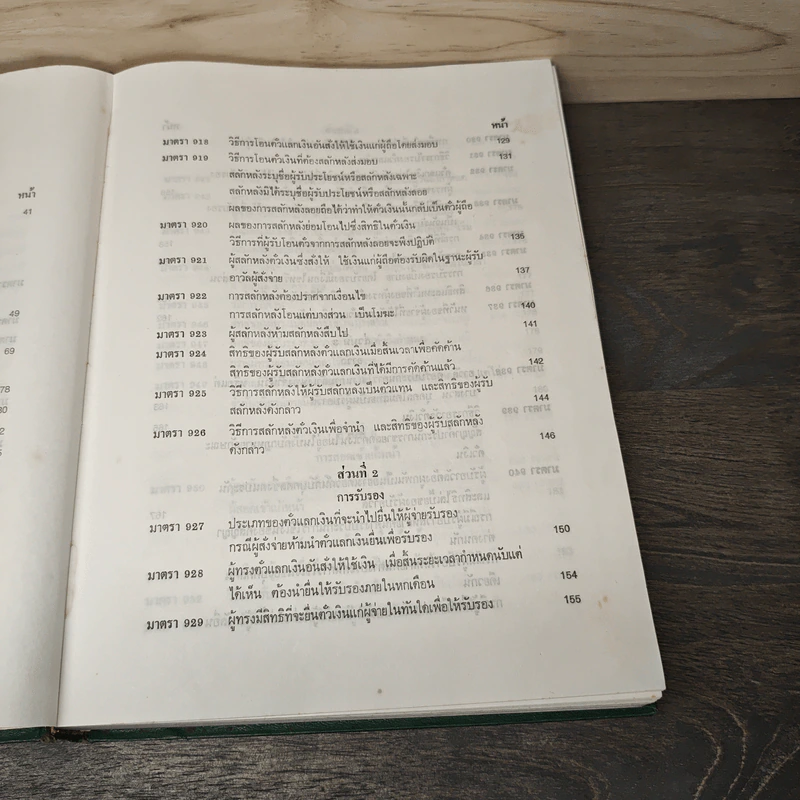 หน้า
41
49
69
78
80
2
5
หน้า
มาตรา 918 วิธีการโอนตั๋วแลกเงินอันสั่งให้ใช้เงินแก่ผู้ถือโดยส่งมอบ 129
มาตรา 919 วิธีการโอนตั๋วเงินที่ต้องสลักหลังส่งมอบ 131
สลักหลังระบุชื่อผู้รับประโยชน์หรือสลักหลังเฉพาะ
สลักหลังมิได้ระบุชื่อผู้รับประโยชน์หรือสลักหลังลอย
ผลของการสลักหลังลอยถือได้ว่าทำให้ตั๋วเงินนั้นกลับเป็นตั๋วผู้ถือ
มาตรา 920 ผลของการสลักหลังย่อมโอนไปซึ่งสิทธิในตั๋วเงิน
วิธีการที่ผู้รับโอนตั๋วจากการสลักหลังลอยจะพึงปฏิบัติ 135
มาตรา 921 ผู้สลักหลังตั๋วเงินซึ่งสั่งให้ ใช้เงินแก่ผู้ถือต้องรับผิดในฐานะผู้รับ
อาวัลผู้สั่งจ่าย 137
มาตรา 922 การสลักหลังต้องปราศจากเงื่อนไข
การสลักหลังโอนแต่บางส่วน เป็นโมฆะ 140
มาตรา 923 ผู้สลักหลังห้ามสลักหลังสืบไป 141
มาตรา 924 สิทธิของผู้รับสลักหลังตั๋วแลกเงินเมื่อสิ้นเวลาเพื่อคัดค้าน
สิทธิของผู้รับสลักหลังตั๋วแลกเงินที่ได้มีการคัดค้านแล้ว 142
มาตรา 925 วิธีการสลักหลังให้ผู้รับสลักหลังเป็นตัวแทน และสิทธิของผู้รับ
สลักหลังดังกล่าว 144
มาตรา 926 วิธีการสลักหลังตั๋วเงินเพื่อจำนำ และสิทธิของผู้รับสลักหลัง
ดังกล่าว 146
ส่วนที่ 2
การรับรอง
มาตรา 927 ประเภทของตั๋วแลกเงินที่จะนำไปยื่นให้ผู้จ่ายรับรอง
กรณีผู้สั่งจ่ายห้ามนำตั๋วแลกเงินยื่นเพื่อรับรอง 150
มาตรา 928 ผู้ทรงตั๋วแลกเงินอันสั่งให้ใช้เงิน เมื่อสิ้นระยะเวลากำหนดนับแต่
ได้เห็น ต้องนำยื่นให้รับรองภายในหกเดือน 154
มาตรา 929 ผู้ทรงมีสิทธิที่จะยื่นตั๋วเงินแก่ผู้จ่ายในทันใดเพื่อให้รับรอง 155